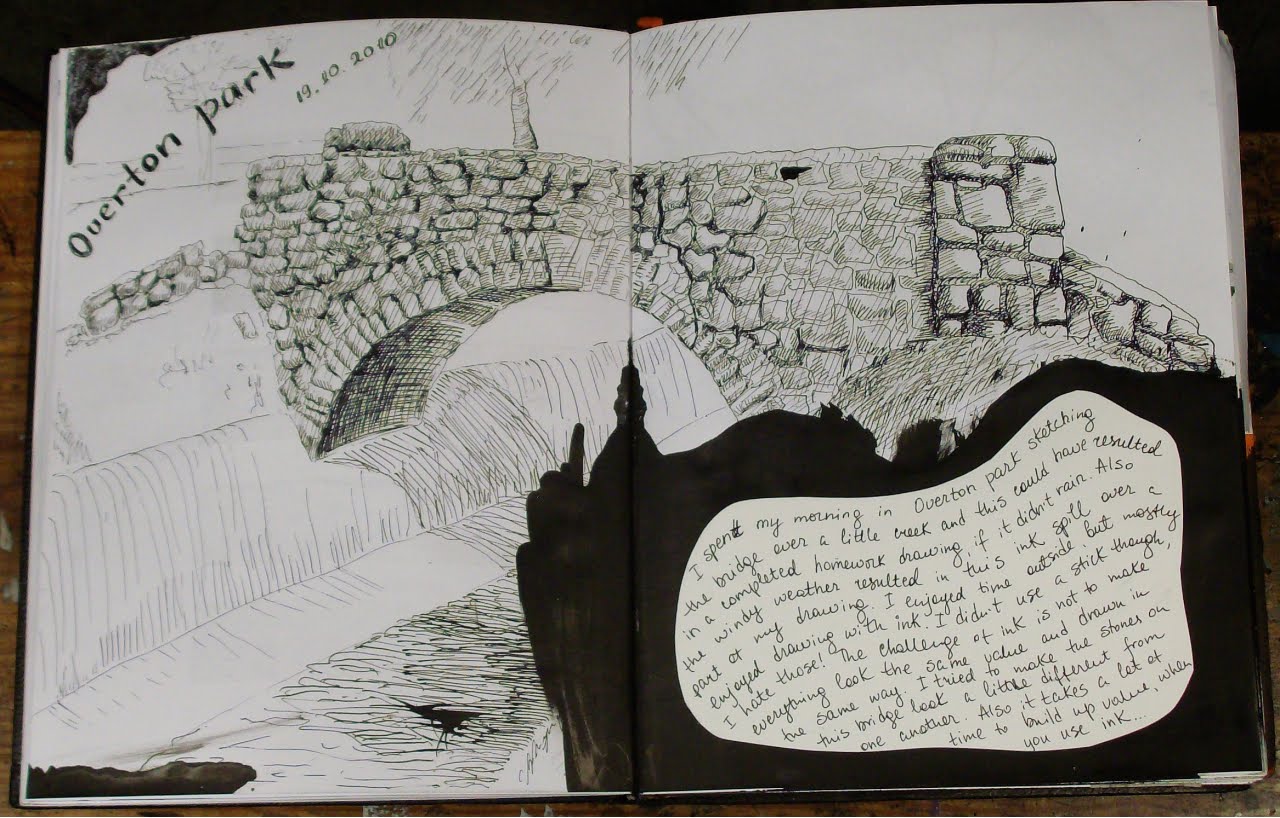 Overton park
19.10.2010
I spent my morning in Overton park sketching
the bridge over a little creek and this could have resulted
in a completed homework drawing, if it didn't rain. Also
the windy weather resulted in this ink spill over a
part of my drawing. I enjoyed time outside but mostly
enjoyed drawing with ink. I didn't use a stick though,
I hate those! The challenge of ink is not to make
everything look the same value and drawn in
the same way. I tried to make the stones on
this bridge look a little different from
one another. Also it takes a lot of
time to build up value, when
you use ink...